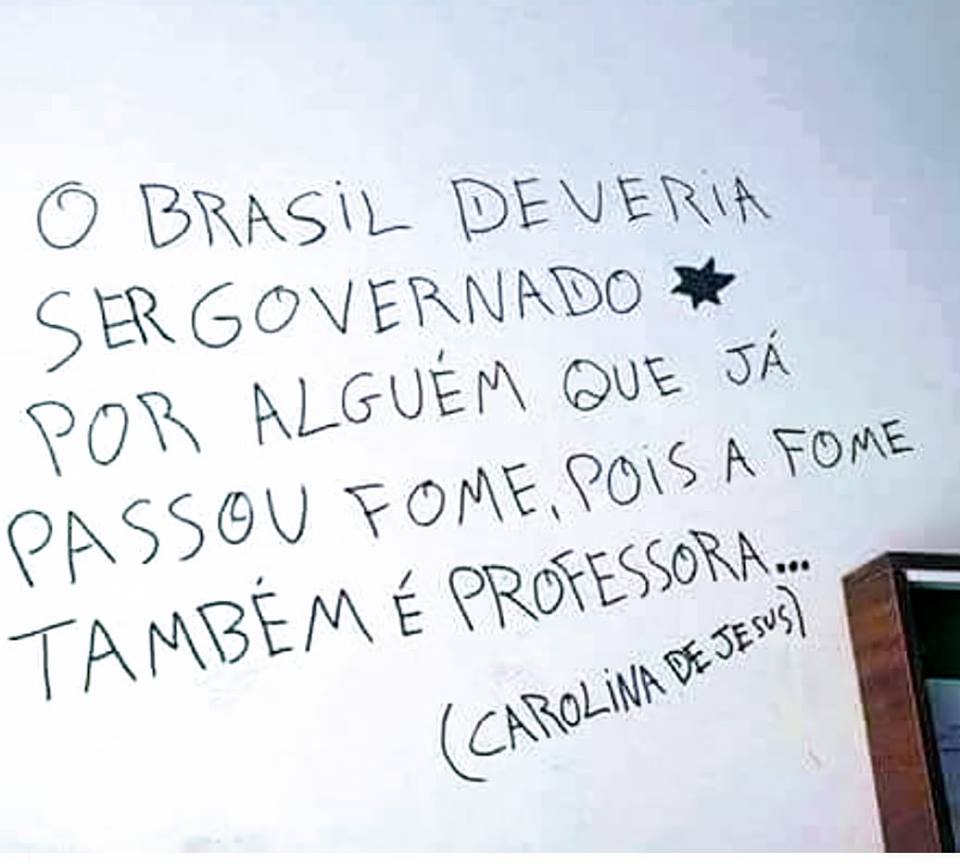 O BRASIL DEVERIA
SER GOVERNADO
POR ALGUÉM QUE JÁ
PASSOU FOME, POIS A FOME
TAMBÉM É PROFESSORA...
(CAROLINA DE JESUS)